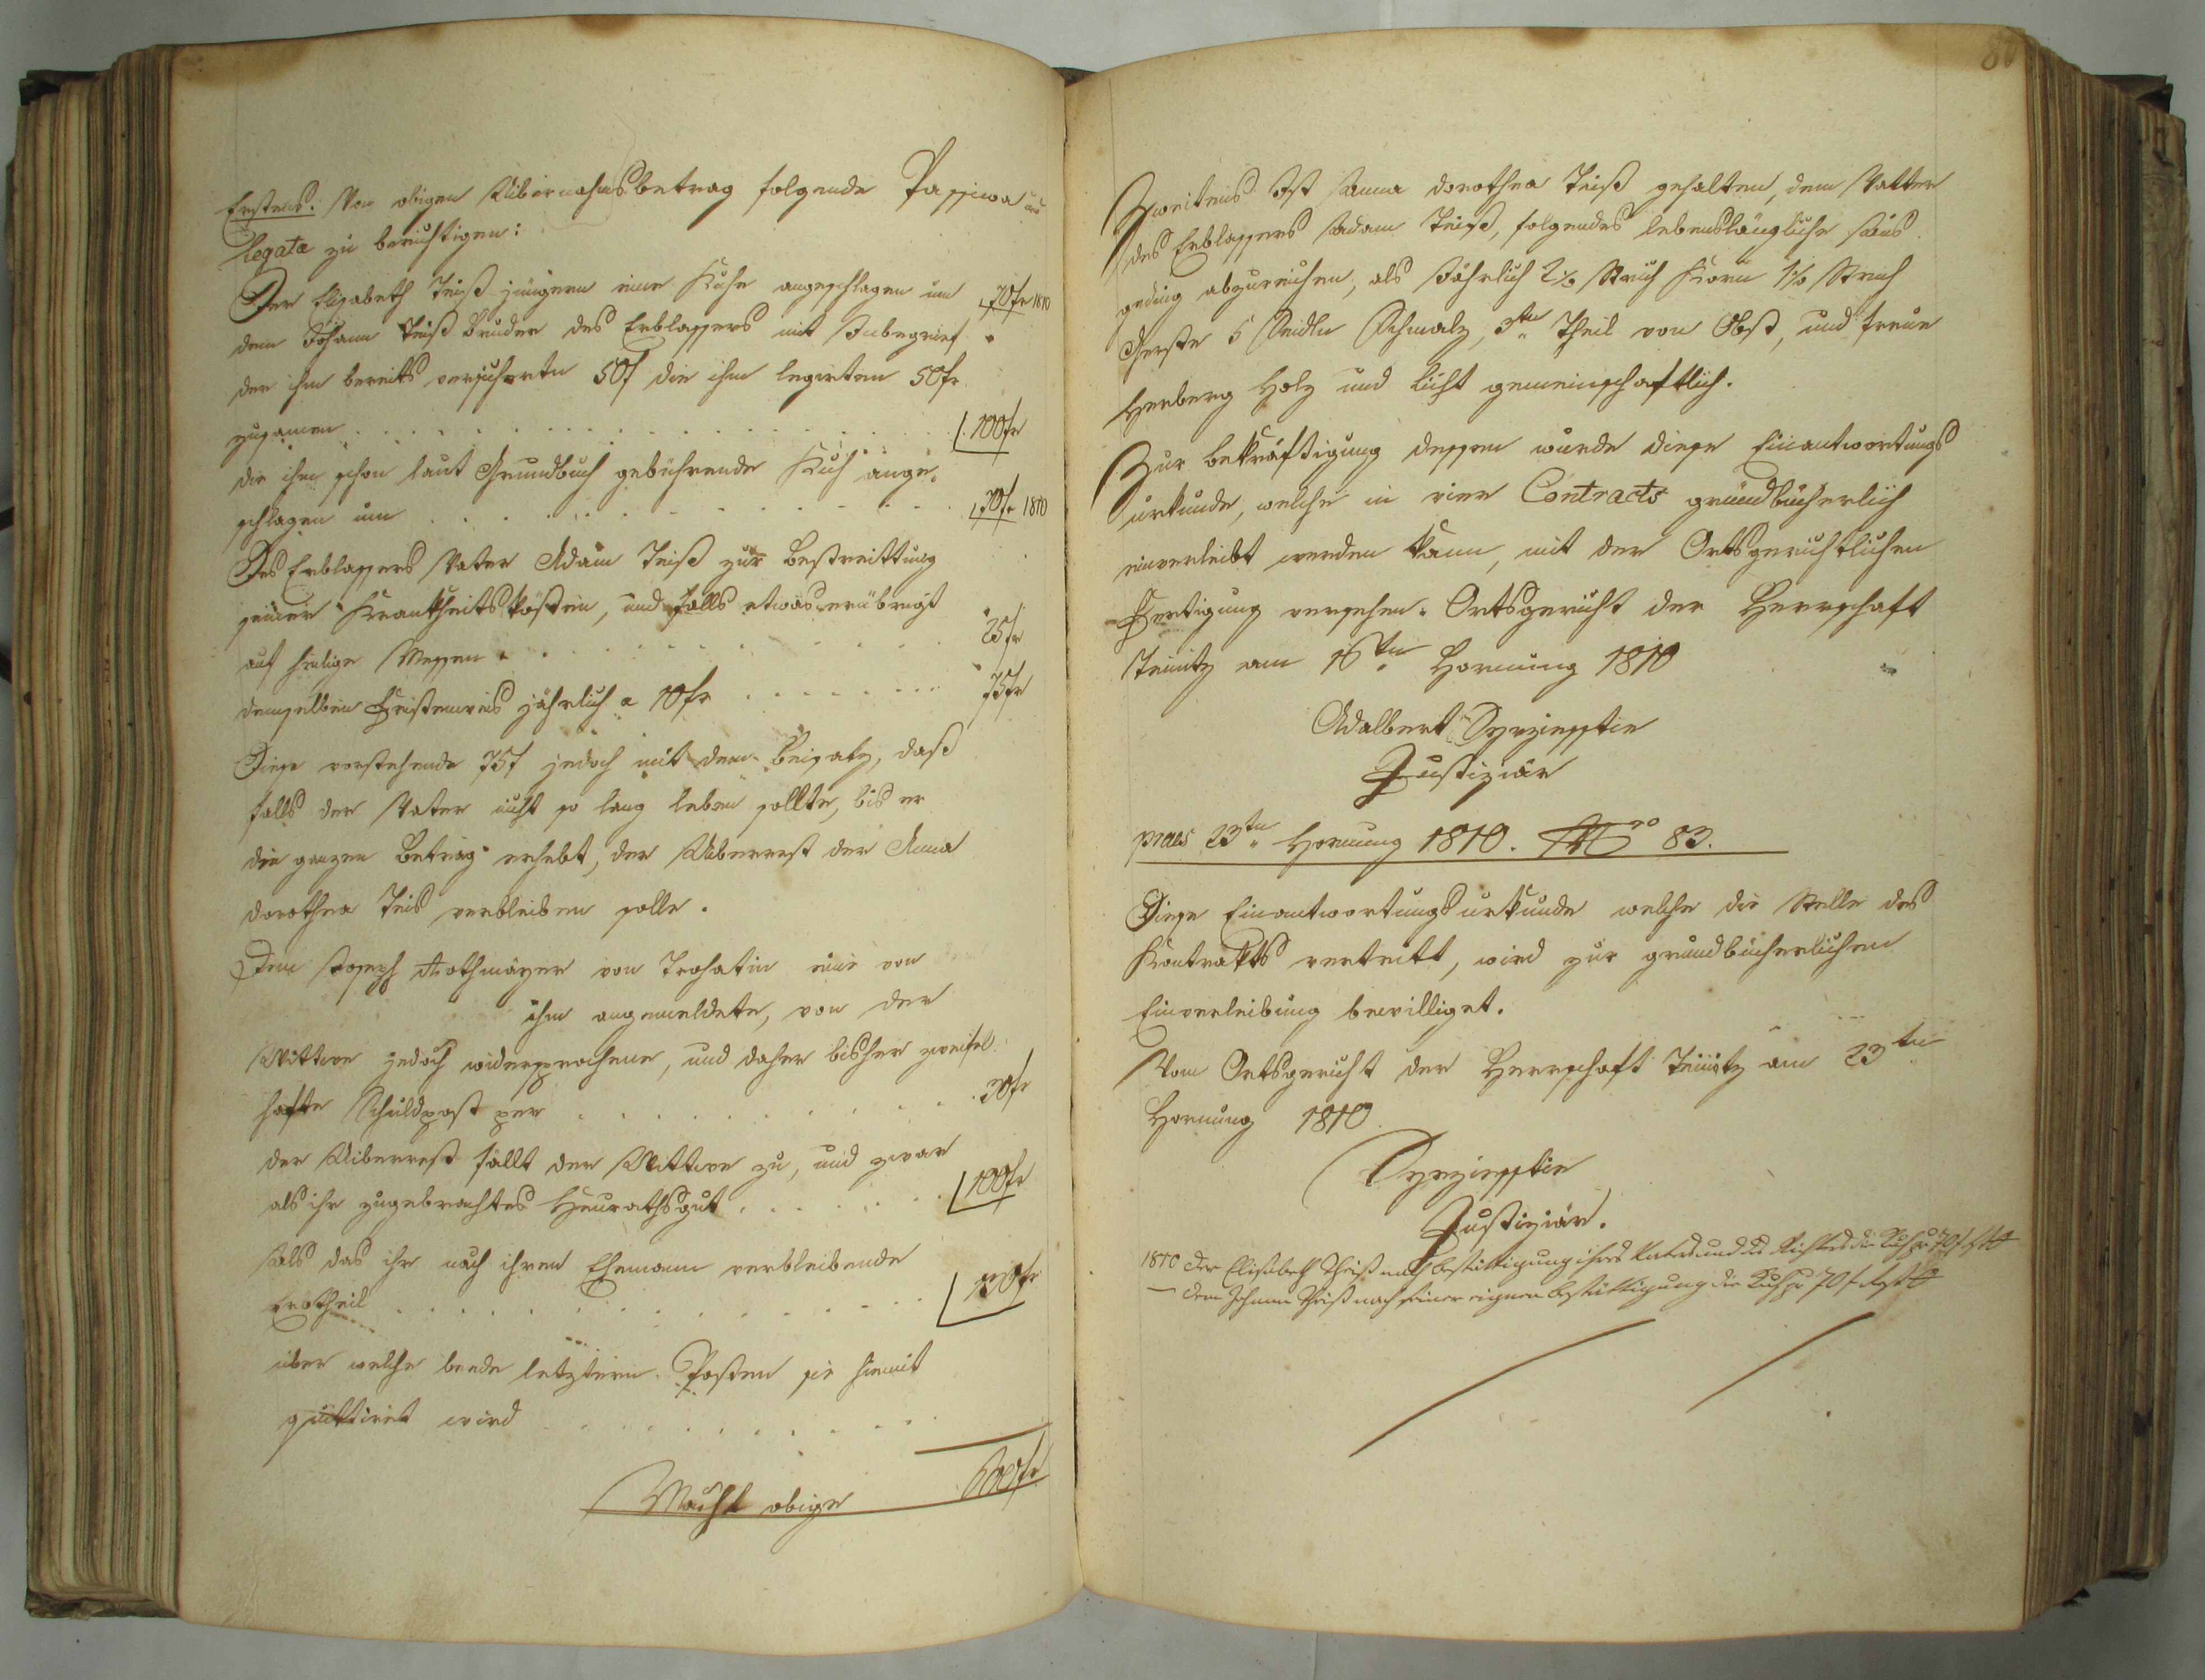 Erstens: Von obigen Uibernahmsbetrag folgende Passiva und
Legata zu berichtigen:
Der Elisabeth Teiß jüngern eine Kuhe angeschlagen um 70 fr 1810
dem Johann Teiß Bruder des Erblassers mit Inbegrief
der ihm bereits versicherten 50f die ihm legirten 50 fr
zusamen . . . 100 fr
die ihm schon laut Grundbuch gebührende Kuh ange-
schlagen um . . . 70 fr 1810
Des Erblassers Vater Adam Teiß zur Bestreittung
seiner Krankheitskösten, und falls etwas erübrigt
auf heilige Messen . . . 25 fr
demselben Fristenweis jährlich a 10 fr . . . 75 fr
Diese vorstehende 75f jedoch mit dem Beisatz, daß
falls der Vater nicht so lang leben sollte, bis er
die ganzen Betrag erhebt, der Uiberrest der Anna
Dorothea Teis verbleiben solle.
Dem Joseph Rothmayer von Trohatin eine von
ihm angemeldete, von der
Wittwe jedoch widersprochene, und daher bisher zweifel
hafte Schuldpost per . . . 30 fr
der Uiberrest fällt der Wittwe zu, und zwar
als ihr zugebrachtes Heurathsgut . . . 100 fr
Als das ihr nach ihren Ehemann verbleibende
Erbtheil . . . 130 fr
über welche beede letztern Posten sie hiemit
quittiret wird . . .
Macht obige 600 fr
80
Zweitens Ist Anna Dorothea Teiß gehalten, dem Vatter
des Erblassers Adam Teiß, folgendes lebenslängliche Aus
geding abzureichen, als Jährlich 2 1/2 Strich Korn 1 1/2 Strich
Gerste 5 Seidln Schmalz, 3ten Theil von Obst, und freue
Herberg Holz und Licht gemeinschaftlich.
Zur Bekräftigung dessen wurde diese Einantwortungs
urkunde, welche in vim Contracts grundbücherlich
einverleibt werden kann, mit der Ortsgerichtlichen
Fertigung versehen. Ortsgericht der Herrschaft
Teinitz am 16ten Hornung 1810
Adalbert
Justiziär
praes 23ten Hornung 1810. Nro 83.
Diese Einantwortungsurkunde welche die Stelle des
Kontrakts vertritt, wird zur grundbücherlichen
Einverleibung bewilliget.
Vom Ortsgericht der Herrschaft Teinitz am 23ten
Hornung 1810
Justiziär.
1810 der Elisabeth Theiß nach bestättigung ihres Vaters und des Richters die Kuh pr 70 f
— dem Johann Theiß nach seiner eignen bestättigung die Kuh pr 70 f